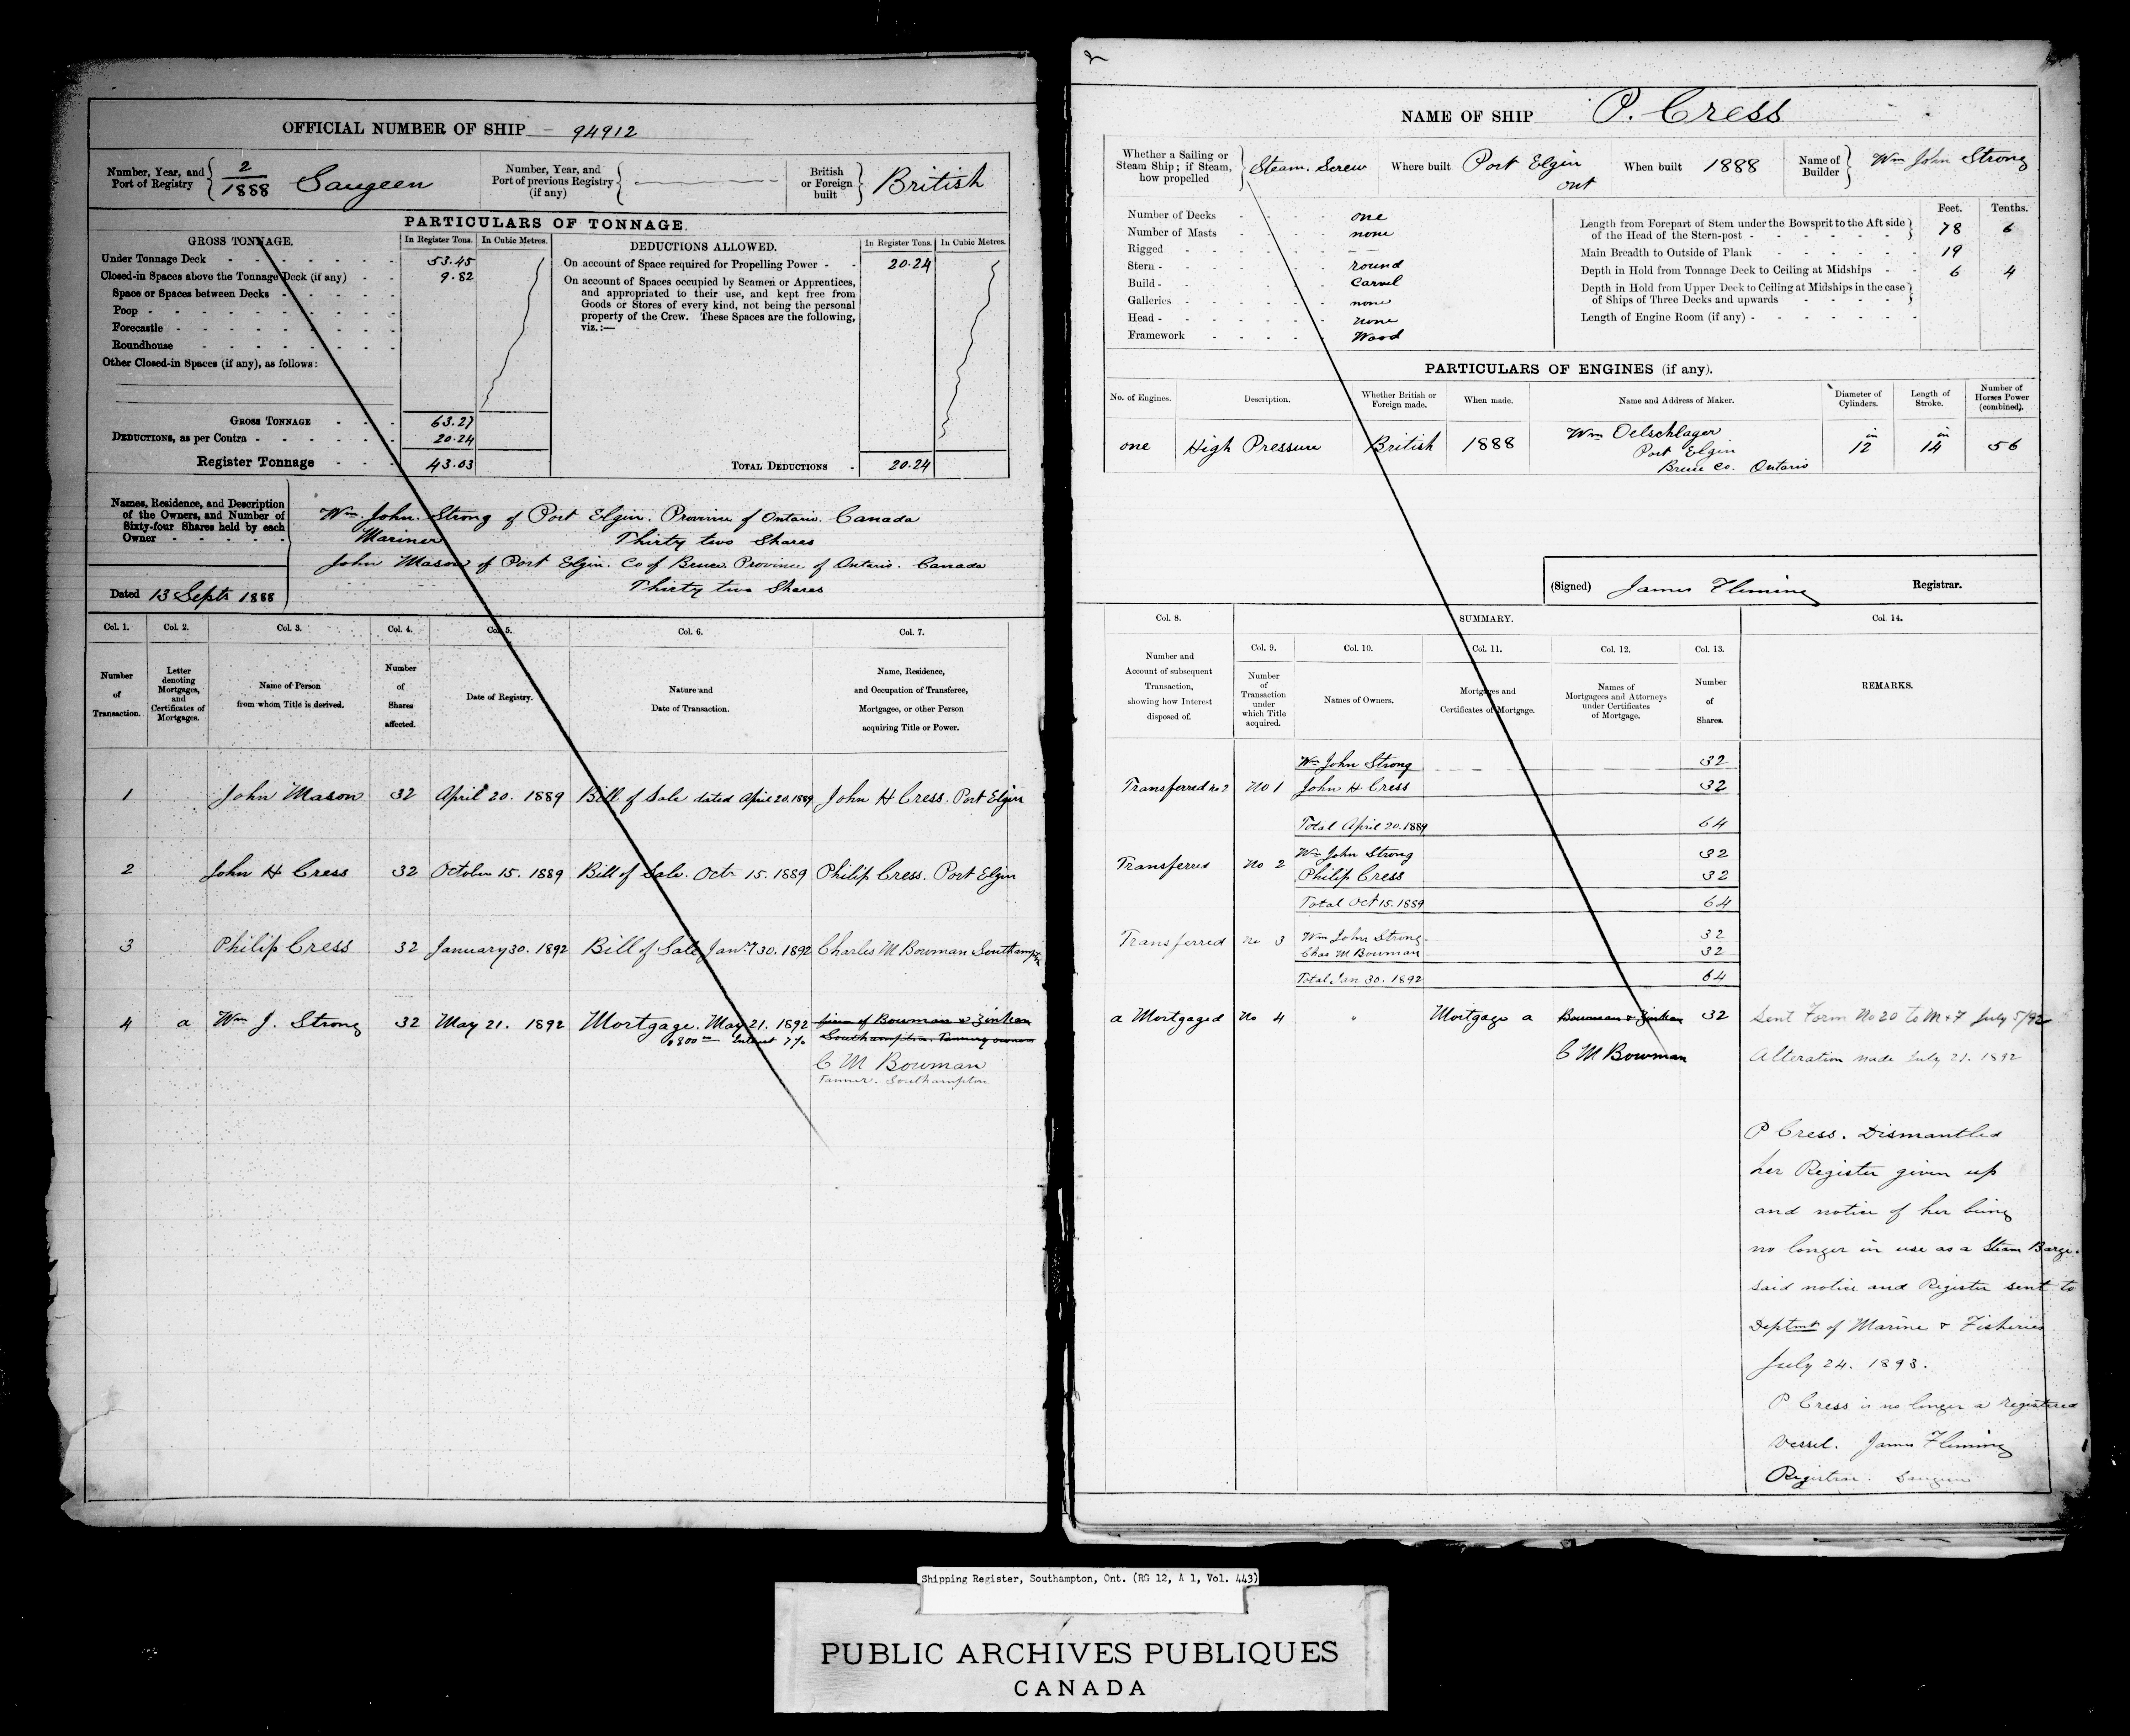 OFFICIAL NUMBER OF SHIP 94912
Number, Year, and Port of Registry 2/1888 Saugeen
Number, Year, and Port of previous Registry (if any)
British or Foreign built British
PARTICULARS OF TONNAGE.
GROSS TONNAGE. In Register Tons. In Cubic Metres.
Under Tonnage Deck 53.45
Closed-in Spaces above the Tonnage Deck (if any) 9.82
Space or Spaces between Decks
Poop
Forecastle
Roundhouse
Other Closed-in Spaces (if any), as follows:
GROSS TONNAGE 63.27
DEDUCTIONS, as per Contra 20.24
Register Tonnage 43.03
DEDUCTIONS ALLOWED. In Register Tons. In Cubic Metres.
On account of Space required for Propelling Power 20.24
On account of Spaces occupied by Seamen or Apprentices,
and appropriated to their use, and kept free from
Goods or Stores of every kind, not being the personal
property of the Crew. These Spaces are the following,
viz.:—
TOTAL DEDUCTIONS 20.24
Names, Residence, and Description
of the Owners, and Number of
Sixty-four Shares held by each
Owner
Wm. John. Strong of Port Elgin. Province of Ontario. Canada
Mariner Thirty two Shares
John Mason of Port Elgin. Co of Bruce. Province of Ontario. Canada
Thirty two Shares
Dated 13 Septr 1888
Col. 1. Col. 2. Col. 3. Col. 4. Col. 5. Col. 6. Col. 7.
Number of Transaction.
Letter denoting Mortgages, and Certificates of Mortgages.
Name of Person from whom Title is derived.
Number of Shares affected.
Date of Registry.
Nature and Date of Transaction.
Name, Residence, and Occupation of Transferee, Mortgagee, or other Person acquiring Title or Power.
1 John Mason 32 April 20. 1889 Bill of Sale dated April 20. 1889 John H Cress. Port Elgin
2 John H Cress 32 October 15. 1889 Bill of Sale. Octr 15. 1889 Philip Cress. Port Elgin
3 Philip Cress 32 January 30. 1892 Bill of Sale Jany 30. 1892 Charles M Bowman Southampton
4 a Wm J. Strong 32 May 21. 1892 Mortgage. May 21. 1892 firm of Bowman & Zinkan
$800 00 Interest 7% Southampton. Tannery owners
C M Bowman
Tanner. Southampton
2
NAME OF SHIP P. Cress
Whether a Sailing or Steam Ship; if Steam, how propelled Steam. Screw
Where built Port Elgin Ont
When built 1888
Name of Builder Wm John Strong
Number of Decks one
Number of Masts none
Rigged
Stern round
Build Carvel
Galleries none
Head none
Framework Wood
Feet. Tenths.
Length from Forepart of Stem under the Bowsprit to the Aft side
of the Head of the Stern-post 78 6
Main Breadth to Outside of Plank 19
Depth in Hold from Tonnage Deck to Ceiling at Midships 6 4
Depth in Hold from Upper Deck to Ceiling at Midships in the case
of Ships of Three Decks and upwards
Length of Engine Room (if any)
PARTICULARS OF ENGINES (if any).
No. of Engines. Description. Whether British or Foreign made. When made. Name and Address of Maker. Diameter of Cylinders. Length of Stroke. Number of Horses Power (combined).
one High Pressure British 1888 Wm Oelschlager Port Elgin Bruce Co. Ontario 12 in 14 in 56
(Signed) James Fleming Registrar.
Col. 8. SUMMARY. Col. 14.
Col. 9. Col. 10. Col. 11. Col. 12. Col. 13.
Number and Account of subsequent Transaction, showing how Interest disposed of.
Number of Transaction under which Title acquired.
Names of Owners.
Mortgages and Certificates of Mortgage.
Names of Mortgagees and Attorneys under Certificates of Mortgage.
Number of Shares.
REMARKS.
Wm John Strong 32
Transferred no 2 No 1 John H Cress 32
Total April 20. 1889 64
Wm John Strong 32
Transferred No 2 Philip Cress 32
Total Oct 15. 1889 64
Wm John Strong 32
Transferred no 3 Chas M Bowman 32
Total Jan 30. 1892 64
a Mortgaged No 4 " Mortgage a Bowman & Zinkan 32 Sent Form No 20 to M & F July 5/92
C M Bowman Alteration made July 21. 1892
P Cress. Dismantled
her Register given up
and notice of her being
no longer in use as a Steam Barge.
Said notice and Register sent to
Deptmt of Marine & Fisheries
July 24. 1893.
P Cress is no longer a registered
Vessel. James Fleming
Registrar. Saugeen
Shipping Register, Southampton, Ont. (RG 12, A 1, Vol. 443)
PUBLIC ARCHIVES PUBLIQUES
CANADA